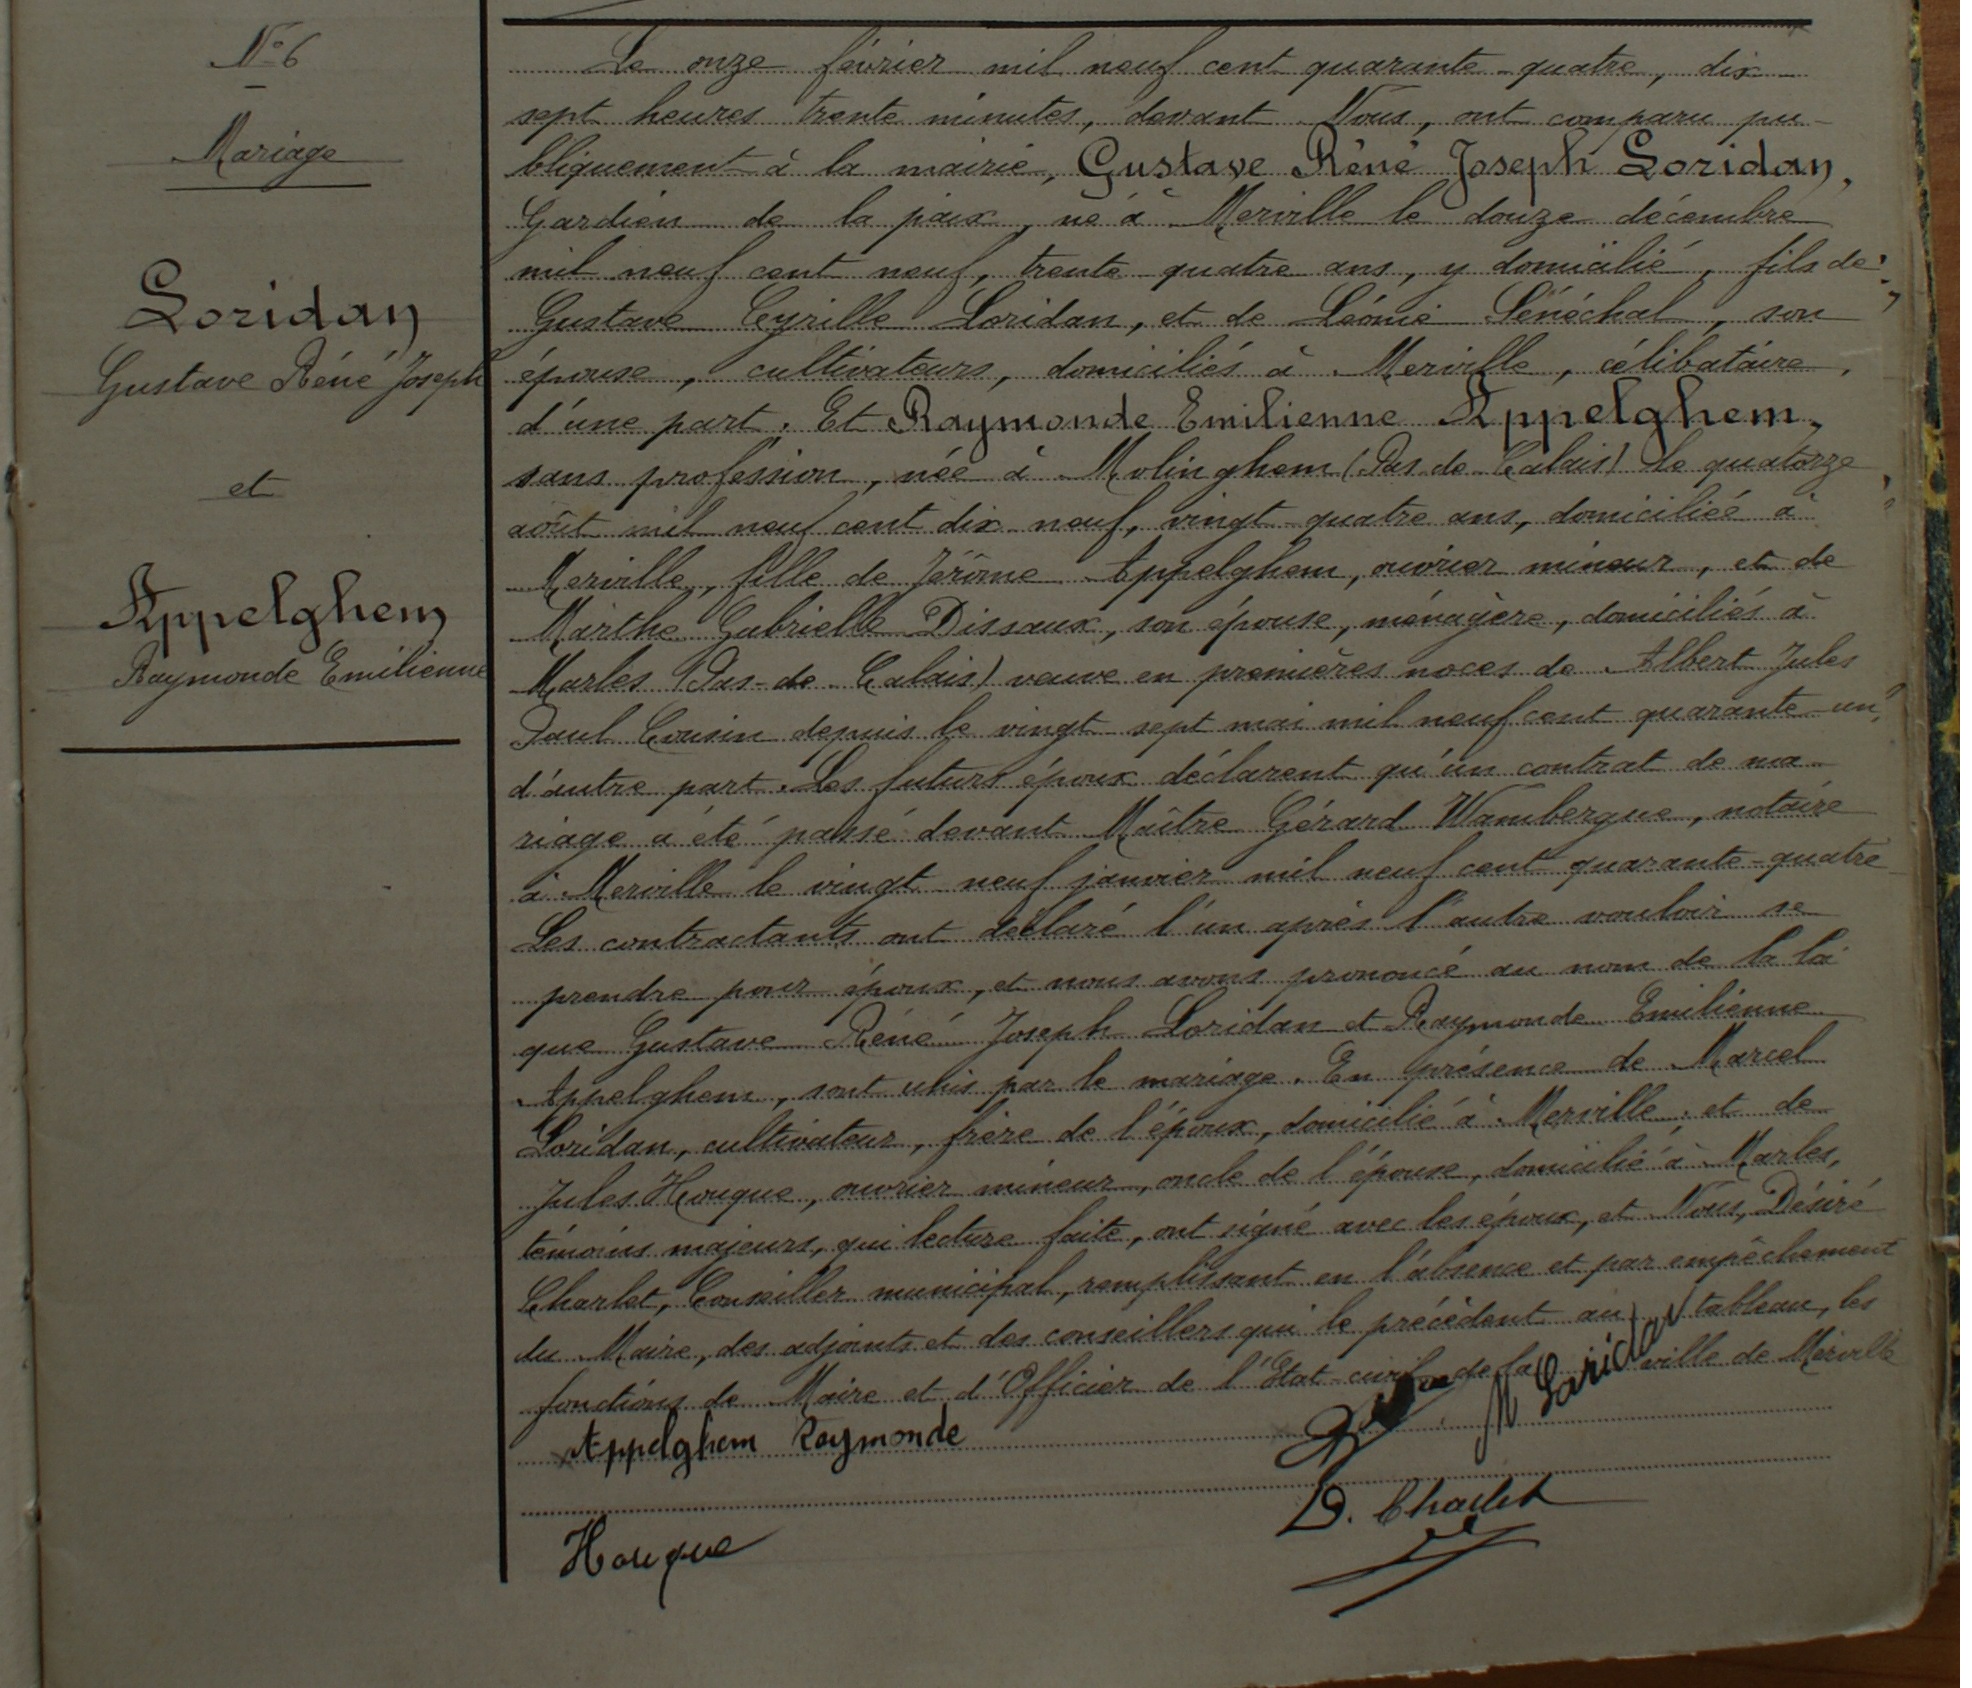 N° 6
Mariage
Loridan
Gustave Réné Joseph
et
Appelghem
Raymonde Emilienne
Le onze février mil neuf cent quarante-quatre, dix-
sept heures trente minutes, devant Nous, ont comparu pu-
bliquement à la mairie, Gustave Réné Joseph Loridan,
Gardien de la paix, né à Merville le douze décembre
mil neuf cent neuf, trente-quatre ans, y domicilié, fils de
Gustave Cyrille Loridan, et de Léonie Sénéchal, son
épouse, cultivateurs, domiciliés à Merville, célibataire,
d'une part. Et Raymonde Emilienne Appelghem,
sans profession, née à Molinghem (Pas-de-Calais) le quatorze
août mil neuf cent dix-neuf, vingt-quatre ans, domiciliée à
Merville, fille de Jérôme Appelghem, ouvrier mineur, et de
Marthe Gabrielle Dissaux, son épouse, ménagère, domiciliés à
Marles (Pas-de-Calais) veuve en premières noces de Albert Jules
Paul Cousin depuis le vingt sept mai mil neuf cent quarante-un,
d'autre part. Les futurs époux déclarent qu'un contrat de ma-
riage a été passé devant Maître Gérard Wambergue, notaire
à Merville le vingt-neuf janvier mil neuf cent quarante-quatre
Les contractants ont déclaré l'un après l'autre vouloir se
prendre pour époux, et nous avons prononcé au nom de la loi
que Gustave Réné Joseph Loridan et Raymonde Emilienne
Appelghem, sont unis par le mariage. En présence de Marcel
Loridan, cultivateur, frère de l'époux, domicilié à Merville, et de
Jules Houque, ouvrier mineur, oncle de l'épouse, domicilié à Marles,
témoins majeurs, qui lecture faite, ont signé avec les époux, et Nous, Désiré
Charlet, Conseiller municipal, remplissant en l'absence et par empêchement
du Maire, des adjoints et des conseillers qui le précèdent au tableau, les
fonctions de Maire et d'Officier de l'Etat-civil de la ville de Merville
Appelghem Raymonde
M Loridan
D. Charlet
Houque